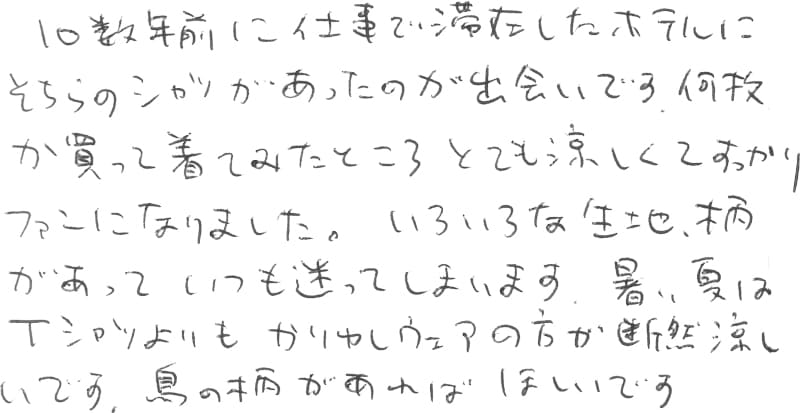 10数年前に仕事で滞在したホテルに
そちらのシャツがあったのが出会いです.何枚
か買って着てみたところ とても涼しくてすっかり
ファンになりました。 いろいろな生地、柄
があって いつも迷ってしまいます. 暑い夏は
Tシャツよりも かりゆしウェアの方が断然涼し
いです. 鳥の柄があれば ほしいです